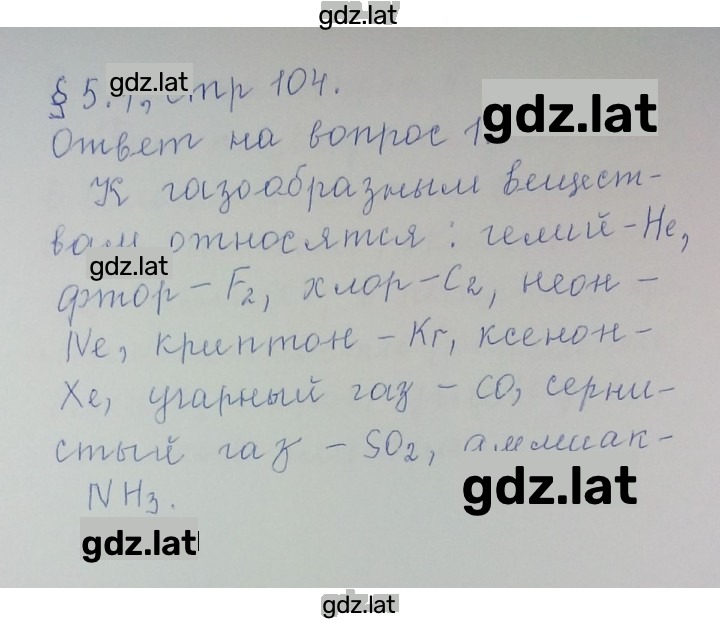 gdz.lat
gdz.lat
§ 5. 1, стр 104.
gdz.lat
Ответ на вопрос 1.
К газообразным вещест-
вам относятся: гелий - He,
gdz.lat
фтор - F2, хлор - C2, неон -
Ne, криптон - Kr, ксенон -
Xe, угарный газ - CO, серни-
стый газ - SO2, аммиак -
NH3.
gdz.lat
gdz.lat
gdz.lat